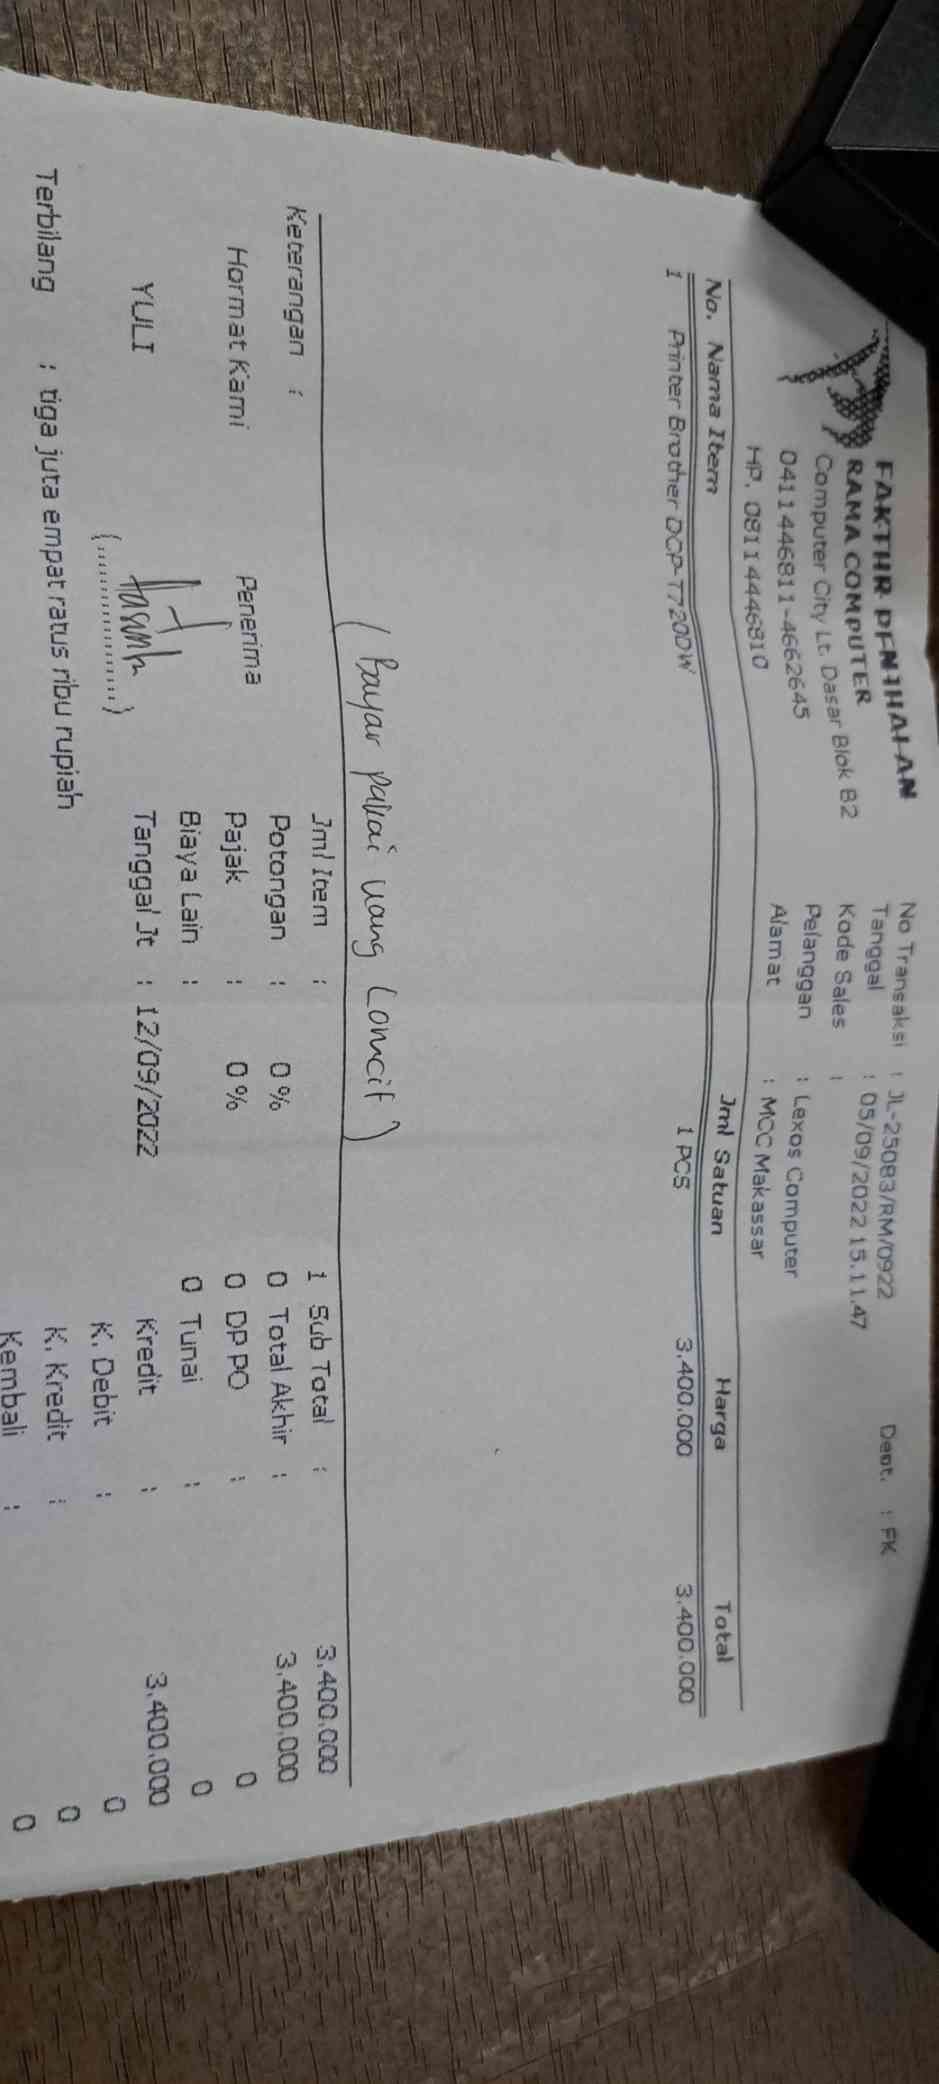 FAKTUR PENJUALAN
RAMA COMPUTER
Computer City Lt. Dasar Blok B2
0411446811-4662645
HP. 08114446810
No Transaksi : JL-25083/RM/0922
Tanggal : 05/09/2022 15.11.47
Kode Sales :
Pelanggan : Lexos Computer
Alamat : MCC Makassar
Dept. : FK
No. Nama Item Jml Satuan Harga Total
1 Printer Brother DCP-T720DW 1 PCS 3.400.000 3.400.000
(Bayar pakai uang Lomcit)
Keterangan :
Hormat Kami
Penerima
YULI
(....................)
Jml Item : 1
Potongan : 0 % 0
Pajak : 0 % 0
Biaya Lain : 0
Tanggal Jt : 12/09/2022
Sub Total : 3.400.000
Total Akhir : 3.400.000
DP PO : 0
Tunai : 0
Kredit : 3.400.000
K. Debit : 0
K. Kredit : 0
Kembali : 0
Terbilang : tiga juta empat ratus ribu rupiah